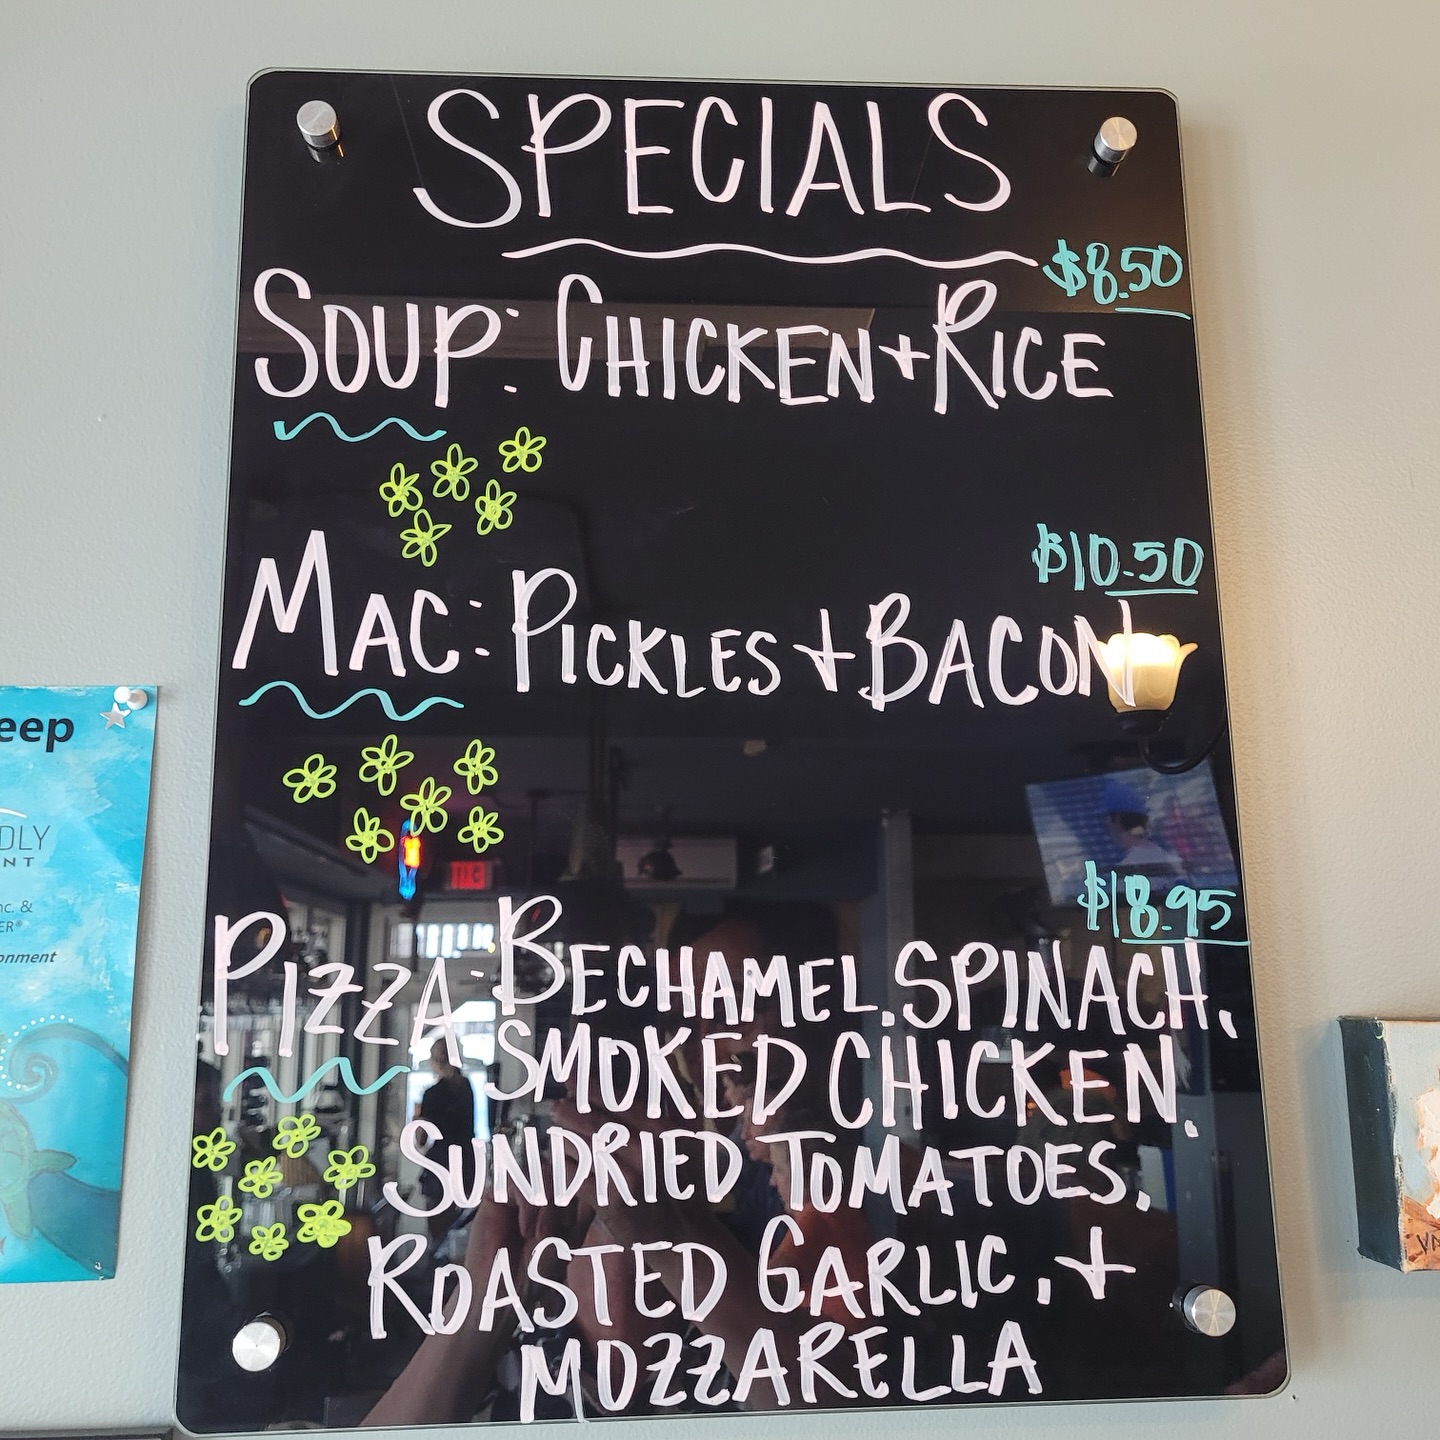 SPECIALS
$8.50
SOUP: CHICKEN + RICE
$10.50
MAC: PICKLES + BACON
$18.95
PIZZA: BECHAMEL, SPINACH,
SMOKED CHICKEN,
SUNDRIED TOMATOES,
ROASTED GARLIC, +
MOZZARELLA
eep
DLY
NT
nc. &
ER®
onment